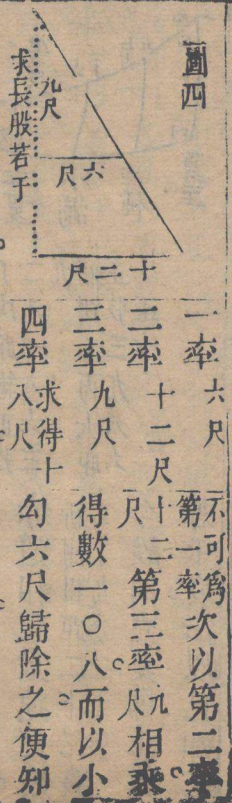 圖四
九尺
六尺
十二尺
求長股若于
一率 六尺
二率 十二尺
三率 九尺
四率 求得十八尺
不可爲第一率次以第二率
十二尺第三率九尺相乘
得數一〇八而以小
勾六尺歸除之便知